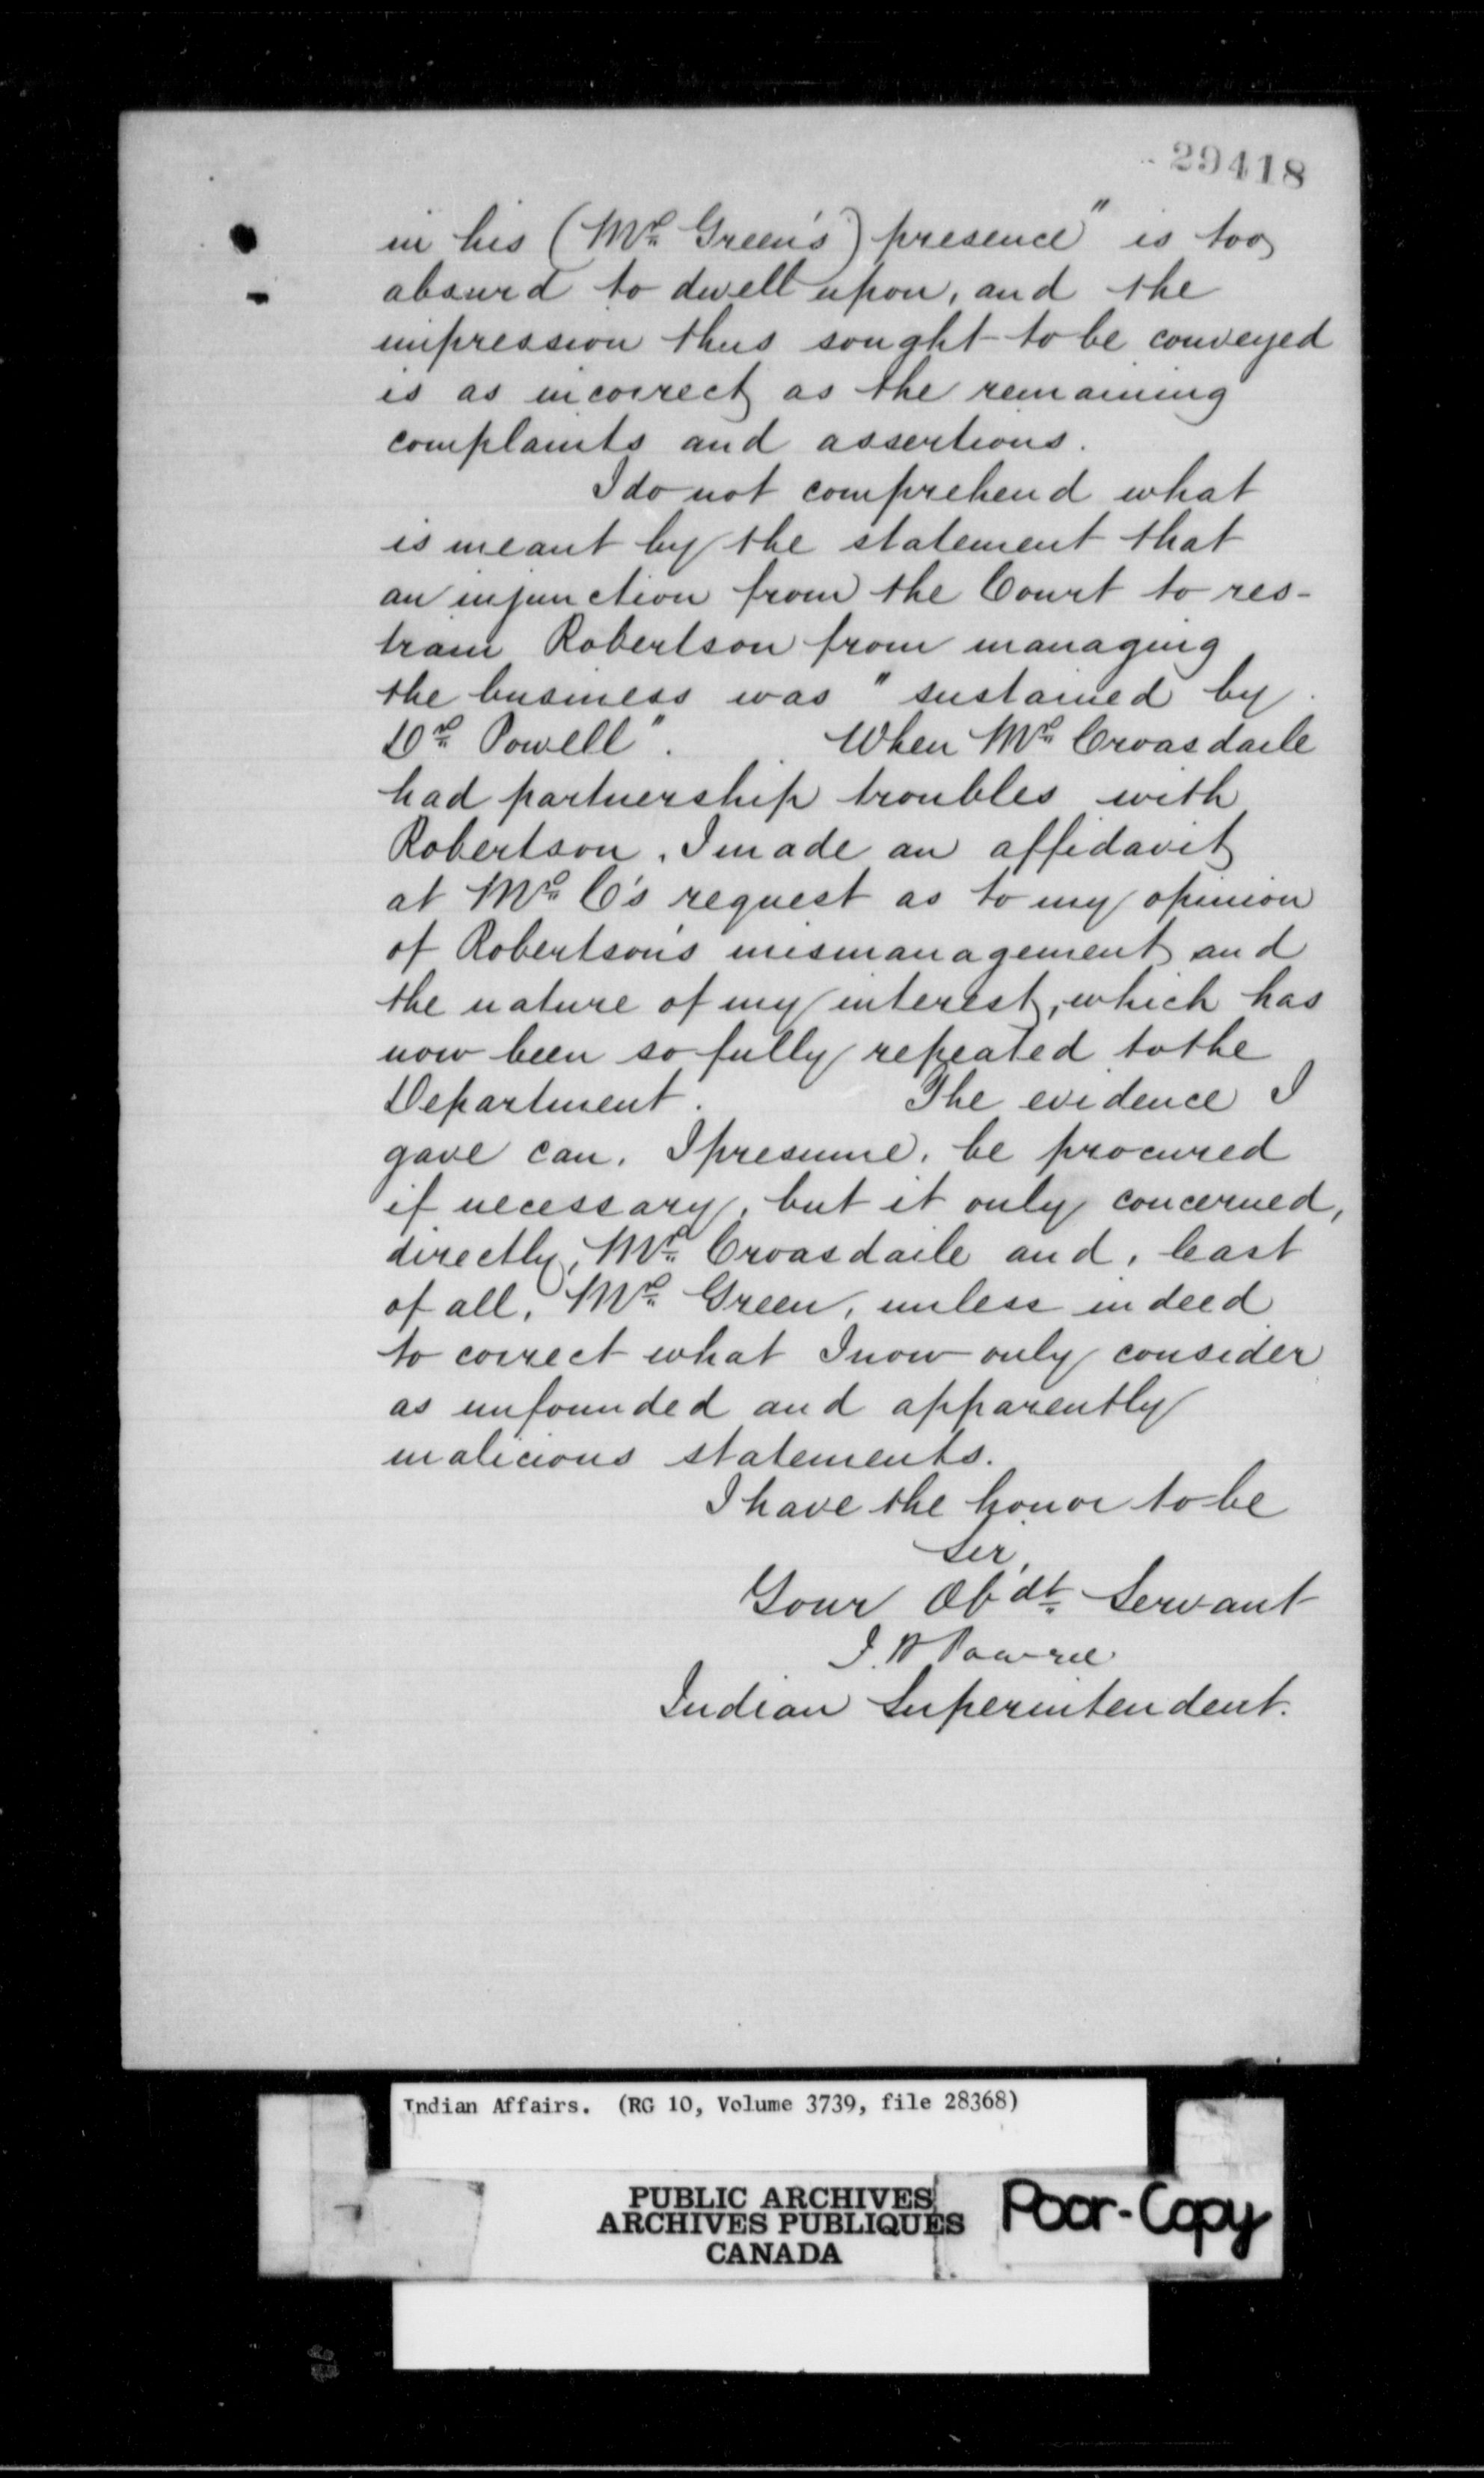 29418
in his (Mr Green's) presence" is too
absurd to dwell upon, and the
impression thus sought to be conveyed
is as incorrect as the remaining
complaints and assertions.
I do not comprehend what
is meant by the statement that
an injunction from the Court to res-
train Robertson from managing
the business was "sustained by
Dr Powell". When Mr Croasdaile
had partnership troubles with
Robertson, I made an affidavit
at Mr C's request as to my opinion
of Robertson's mismanagement and
the nature of my interest, which has
now been so fully repeated to the
Department. The evidence I
gave can, I presume, be procured
if necessary, but it only concerned,
directly, Mr Croasdaile and, least
of all, Mr Green, unless indeed
to correct what I now only consider
as unfounded and apparently
malicious statements.
I have the honor to be
Sir,
Your Obdt Servant
I. W Powell
Indian Superintendent.
Indian Affairs. (RG 10, Volume 3739, file 28368)
PUBLIC ARCHIVES
ARCHIVES PUBLIQUES
CANADA
Poor-Copy